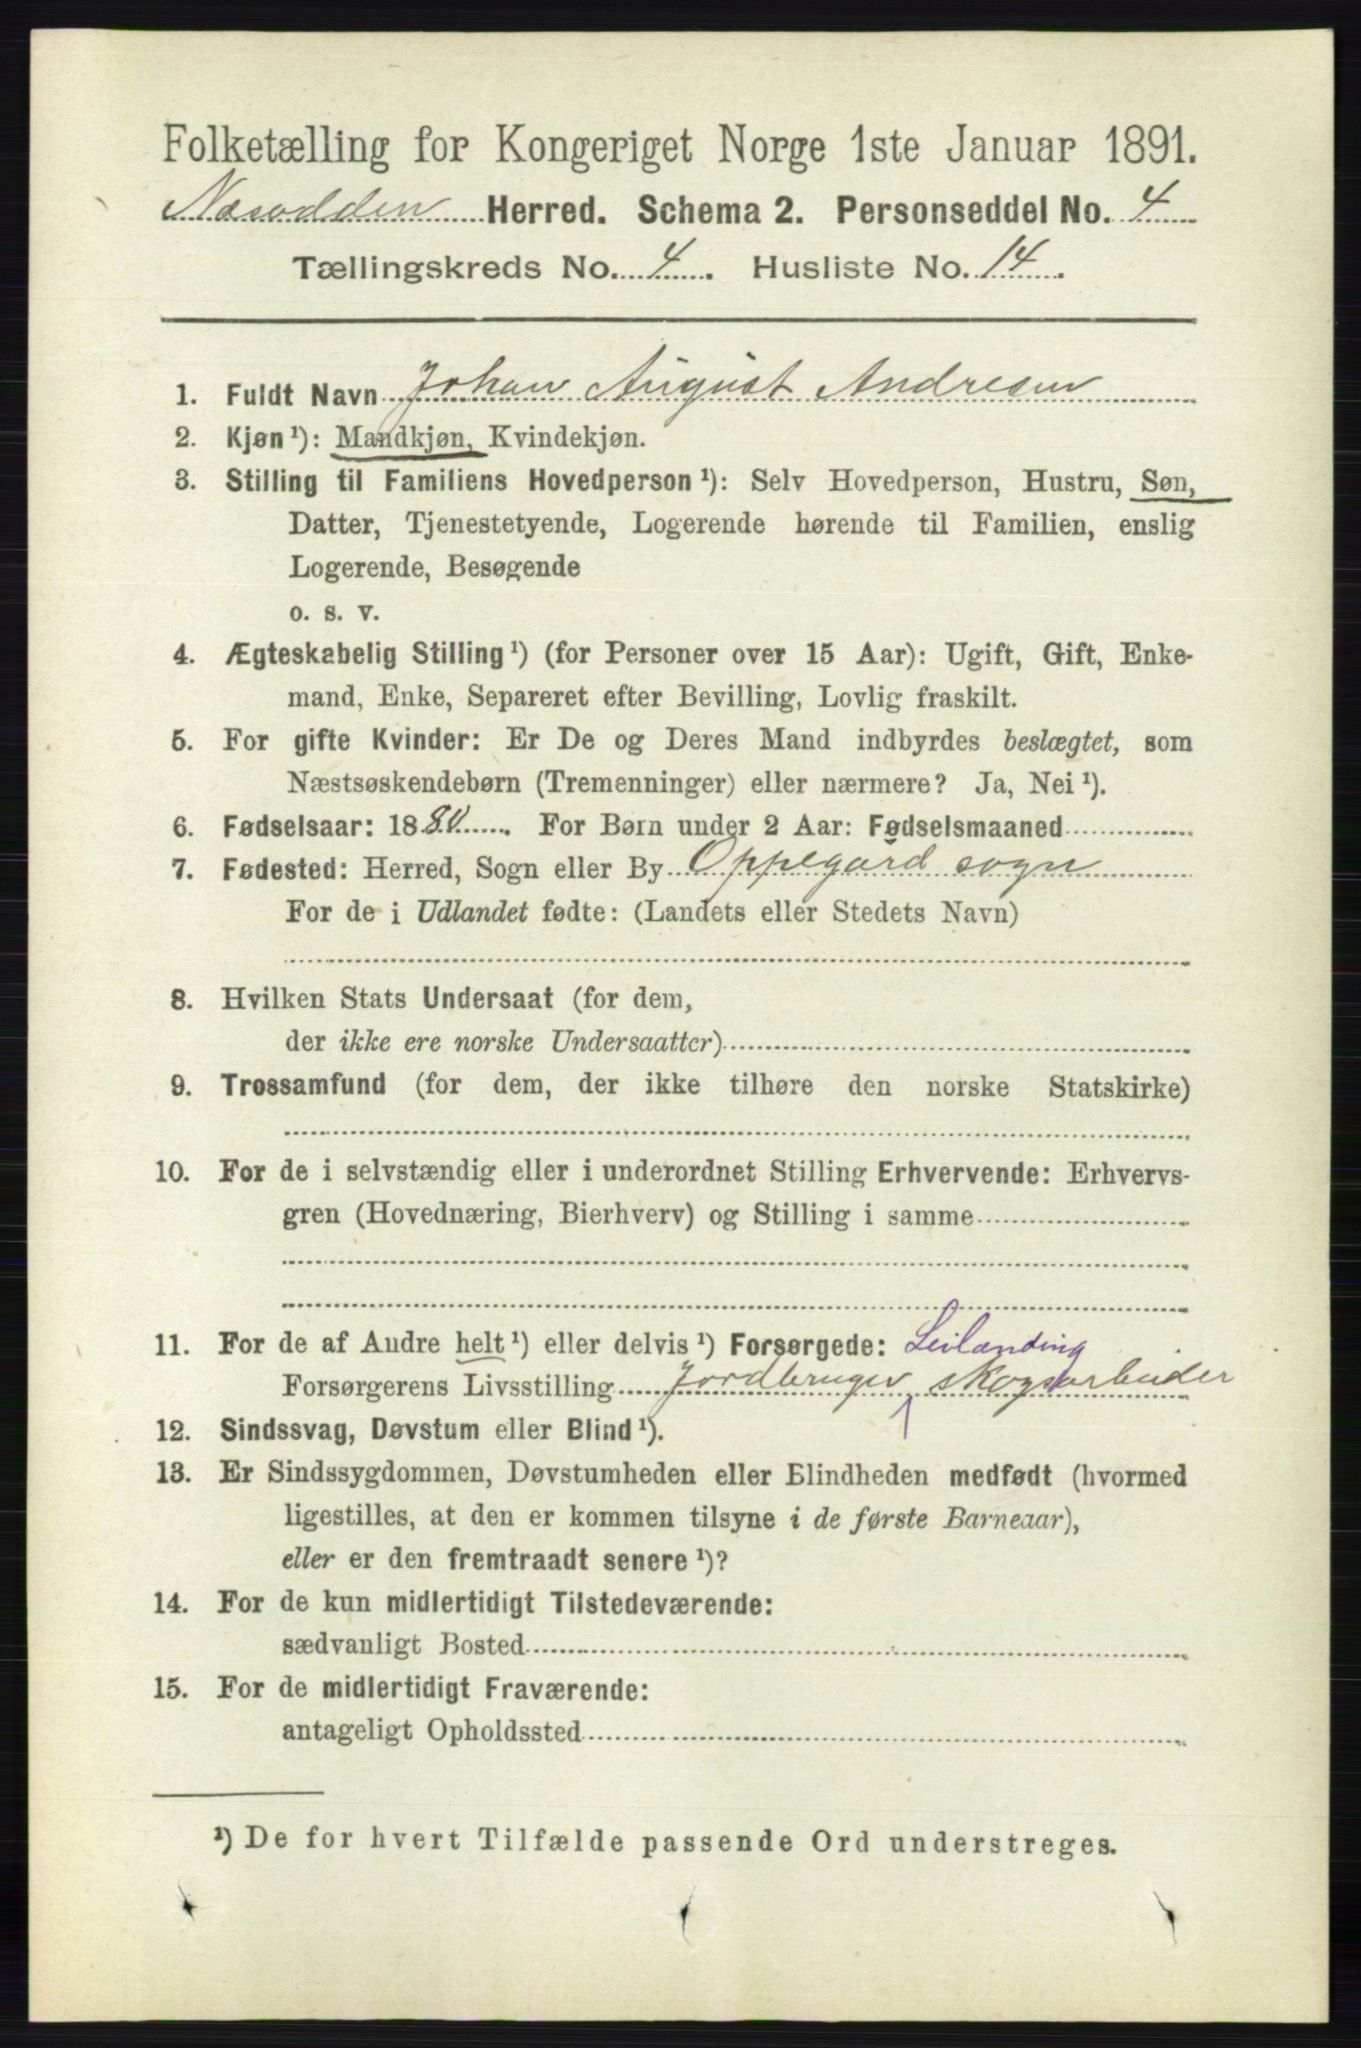 Folketælling for Kongeriget Norge 1ste Januar 1891.
Næsodden Herred. Schema 2. Personseddel No. 4
Tællingskreds No. 4. Husliste No. 14.
1. Fuldt Navn Johan August Andresen
2. Kjøn¹): Mandkjøn, Kvindekjøn.
3. Stilling til Familiens Hovedperson¹): Selv Hovedperson, Hustru, Søn,
Datter, Tjenestetyende, Logerende hørende til Familien, enslig
Logerende, Besøgende
o. s. v.
4. Ægteskabelig Stilling¹) (for Personer over 15 Aar): Ugift, Gift, Enke-
mand, Enke, Separeret efter Bevilling, Lovlig fraskilt.
5. For gifte Kvinder: Er De og Deres Mand indbyrdes beslægtet, som
Næstsøskendebørn (Tremenninger) eller nærmere? Ja, Nei¹).
6. Fødselsaar: 1880. For Børn under 2 Aar: Fødselsmaaned
7. Fødested: Herred, Sogn eller By Oppegård sogn
For de i Udlandet fødte: (Landets eller Stedets Navn)
8. Hvilken Stats Undersaat (for dem,
der ikke ere norske Undersaatter)
9. Trossamfund (for dem, der ikke tilhøre den norske Statskirke)
10. For de i selvstændig eller i underordnet Stilling Erhvervende: Erhvervs-
gren (Hovednæring, Bierhverv) og Stilling i samme
11. For de af Andre helt¹) eller delvis¹) Forsørgede: Leilænding
Forsørgerens Livsstilling Jordbruger skogsarbeider
12. Sindssvag, Døvstum eller Blind¹).
13. Er Sindssygdommen, Døvstumheden eller Blindheden medfødt (hvormed
ligestilles, at den er kommen tilsyne i de første Barneaar),
eller er den fremtraadt senere¹)?
14. For de kun midlertidigt Tilstedeværende:
sædvanligt Bosted
15. For de midlertidigt Fraværende:
antageligt Opholdssted
¹) De for hvert Tilfælde passende Ord understreges.